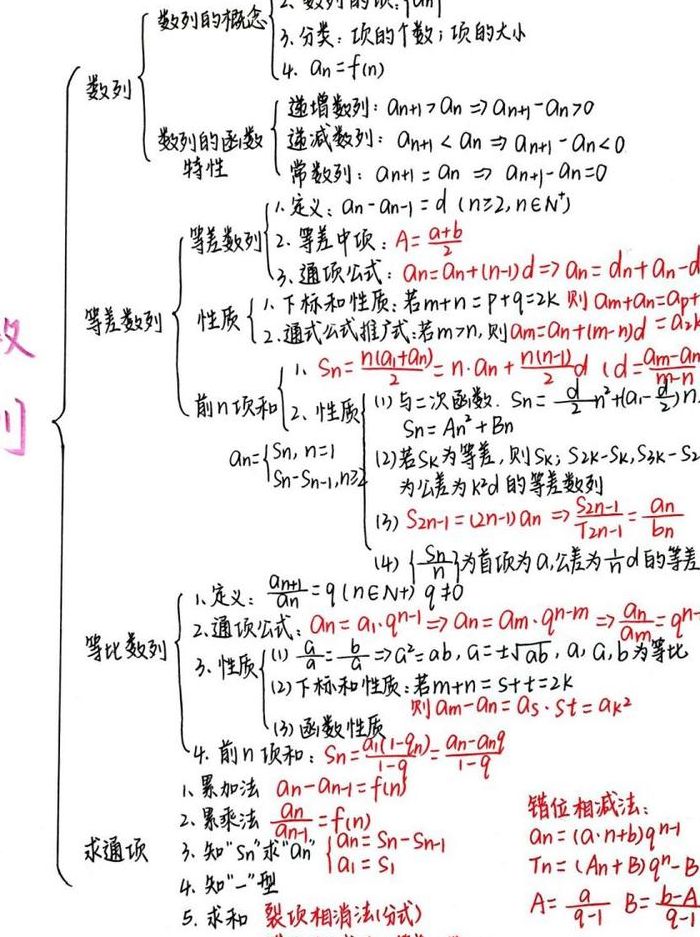 数列
数列
数列的概念
2. 数列的项:{an}
3.分类:项的个数;项的大小
4. an=f(n)
数列的函数
特性
递增数列:an+1>an ⇒ an+1-an>0
递减数列:an+1<an ⇒ an+1-an<0
常数列:an+1=an ⇒ an+1-an=0
等差数列
等差数列
1.定义:an-an-1=d (n≥2,n∈N⁺)
2.等差中项:A=(a+b)/2
3.通项公式:an=an+(n-1)d⇒an=dn+an-d
性质
1.下标和性质:若m+n=p+q=2k 则am+an=ap+
2.通式公式推广式:若m>n,则am=an+(m-n)d =a2k
前n项和
1. Sn=n(a1+an)/2=n·an+n(n-1)/2 d (d=(am-an)/(m-n)
2.性质
(1)与二次函数.Sn=d/2 n²+(a1-d/2)n.
Sn=An²+Bn
an={Sn, n=1
Sn-Sn-1,n≥2
(2)若Sk为等差,则Sk;S2k-Sk,S3k-S2
为公差为k²d的等差数列
(3) S2n-1=(2n-1)an ⇒ S2n-1/T2n-1=an/bn
(4) {Sn/n}为首项为a,公差为1/n d的等差
等比数列
1.定义:an+1/an=q(n∈N+) q≠0
2.通项公式:an=a1·qⁿ⁻¹⇒an=am·qⁿ⁻ᵐ⇒an/am=qⁿ⁻
3.性质
(1) G/a=b/G⇒G²=ab,G=±√ab,a,G,b为等比
(2)下标和性质:若m+n=s+t=2k
则am-an=as·st=ak²
(3)函数性质
4.前n项和:Sn=a1(1-qn)/(1-q)=(an-anq)/(1-q)
求通项
1.累加法 an-an-1=f(n)
2.累乘法 an/an-1=f(n)
3.知"Sn"求"an" {an=Sn-Sn-1
a1=S1
4.知"-"型
5.求和 裂项相消法(分式)
错位相减法:
an=(a·n+b)qⁿ⁻¹
Tn=(An+B)qⁿ-B
A=a/(q-1) B=(b-A)/(q-1)